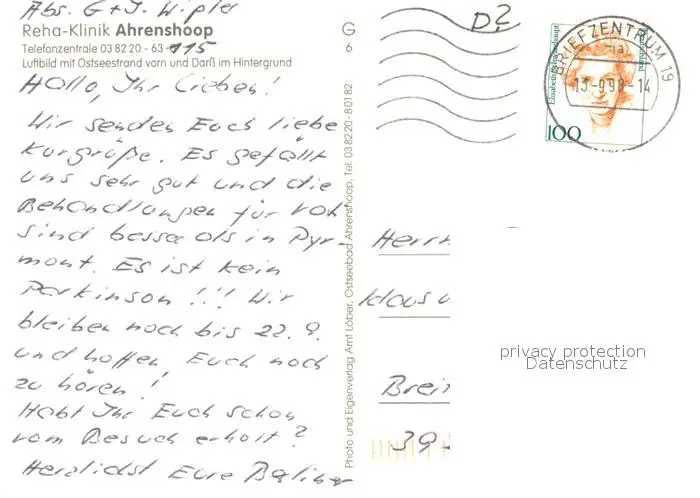 Abs. G + J. Wipler
Reha-Klinik Ahrenshoop
Telefonzentrale 03 82 20 - 63 - 115
Luftbild mit Ostseestrand vorn und Darß im Hintergrund
G
6
Hallo, Ihr Lieben!
Wir senden Euch liebe
Kurgrüße. Es gefällt
uns sehr gut und die
Behandlungen für
sind besser als in Pyr-
mont. Es ist kein
Parkinson!!! Wir
bleiben noch bis 22. 9.
und hoffen, Euch noch
zu hören!
Habt Ihr Euch schon
vom Besuch erholt?
Herzlichst Eure
Photo und Eigenverlag Arnt Löber, Ostseebad Ahrenshoop, Tel. 03 82 20 - 801 82
D2
BRIEFZENTRUM 19
13.-9.98-14
100
Herrn
Klaus u
Brei
39
privacy protection
Datenschutz